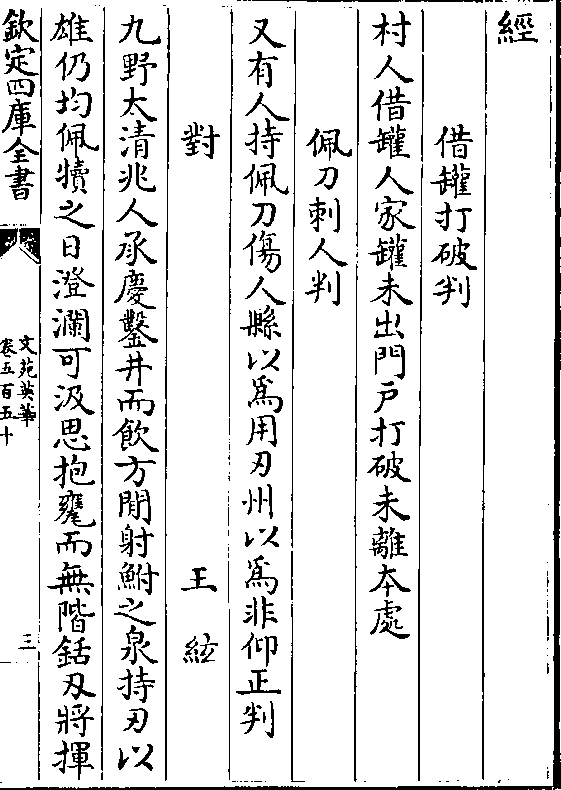 經
借罐打破判
村人借罐人家罐未出門戶打破未離本處
佩刀刺人判
又有人持佩刀傷人縣以爲用刃州以爲非仰正判
對 王絃
九野太清兆人承慶鑿井而飲方閒射鮒之泉持刃以
雄仍均佩犢之日澄瀾可汲思抱甕而無階銛刃將揮
欽定四庫全書
文苑英華
卷五百五十
三